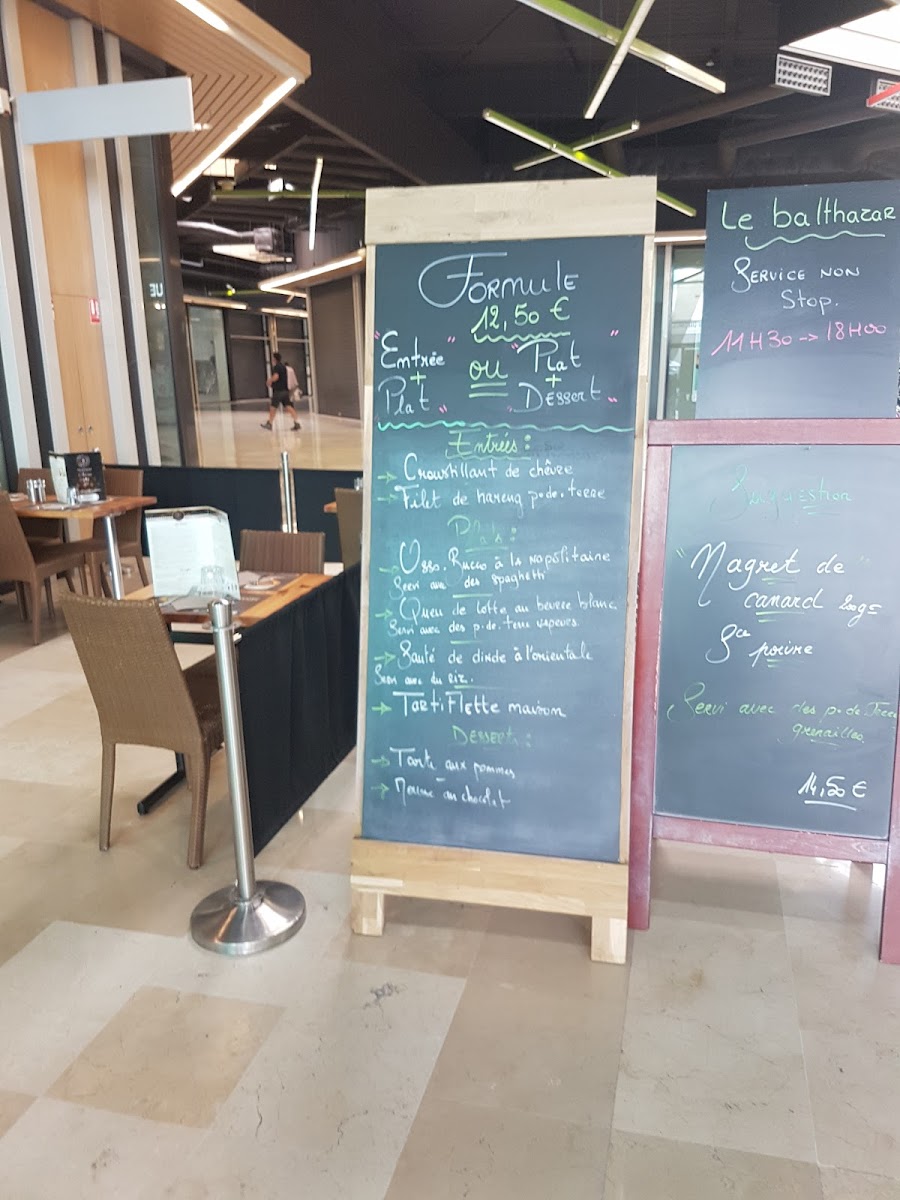 Formule
12,50 €
"Entrée" ou "Plat
+ +
Plat" "Dessert"
Entrées:
→ Croustillant de chèvre
→ Filet de hareng p.de.terre
Plats:
→ Osso.Bucco à la napolitaine
Servi avec des spaghetti
→ Queu de lotte au beurre blanc
Servi avec des p.de.terre vapeurs
→ Sauté de dinde à l'orientale
Servi avec du riz.
→ Tartiflette maison
Desserts:
→ Tarte aux pommes
→ Mousse au chocolat
Le balthazar
Service non
Stop.
11H30 -> 18H00
Suggestion
"Magret de"
canard 200gr
Sce poivre
Servi avec des p.de.Terre
grenailles.
14,50 €